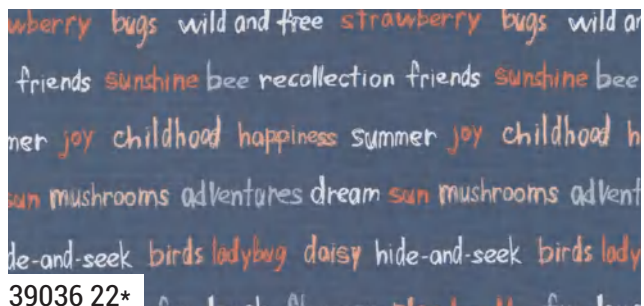 wberry bugs wild and free strawberry bugs wild an
friends sunshine bee recollection friends sunshine bee
mer joy childhood happiness summer joy childhood h
sun mushrooms adventures dream sun mushrooms advent
de-and-seek birds ladybug daisy hide-and-seek birds lady
39036 22*